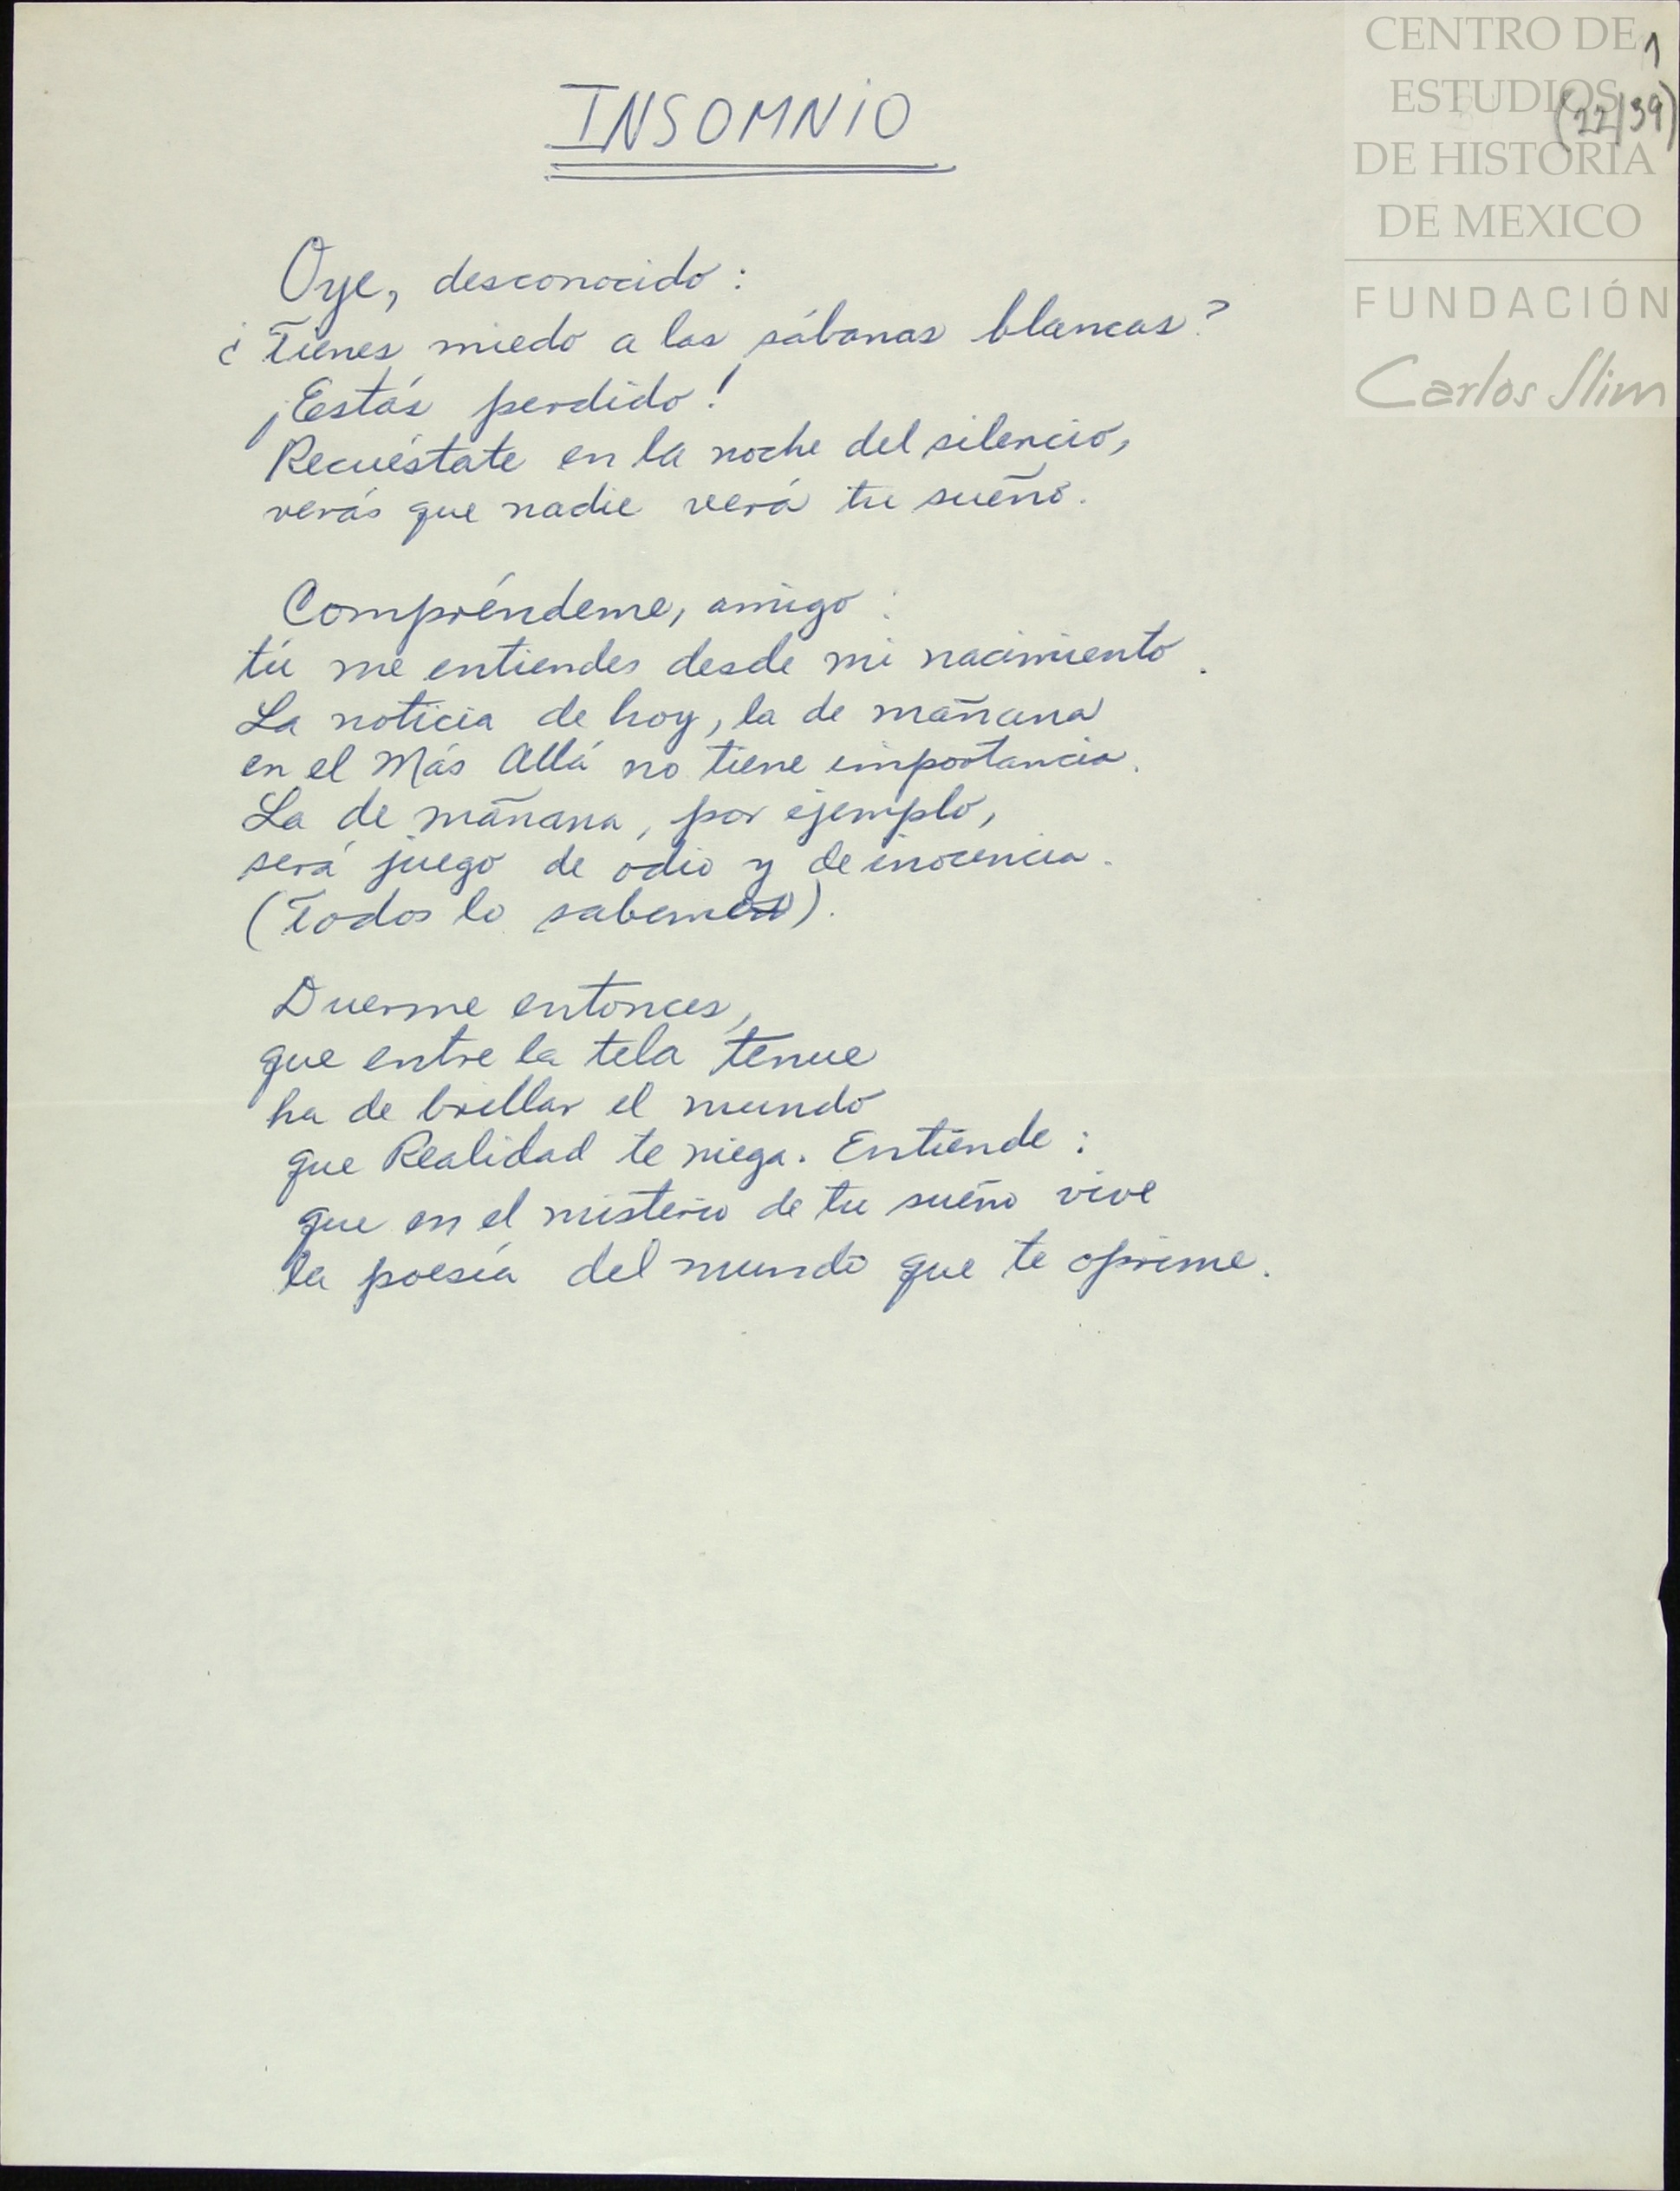 CENTRO DE
ESTUDIOS
DE HISTORIA
DE MEXICO
FUNDACIÓN
Carlos Slim
1
(22/39)
INSOMNIO
Oye, desconocido:
¿Tienes miedo a las sábanas blancas?
¡Estás perdido!
Recuéstate en la noche del silencio,
verás que nadie verá tu sueño.
Compréndeme, amigo:
tú me entiendes desde mi nacimiento.
La noticia de hoy, la de mañana
en el Más Allá no tiene importancia.
La de mañana, por ejemplo,
será juego de odio y de inocencia.
(Todos lo sabemos).
Duerme entonces,
que entre la tela tenue
ha de brillar el mundo
que Realidad te niega. Entiende:
que en el misterio de tu sueño vive
la poesía del mundo que te oprime.